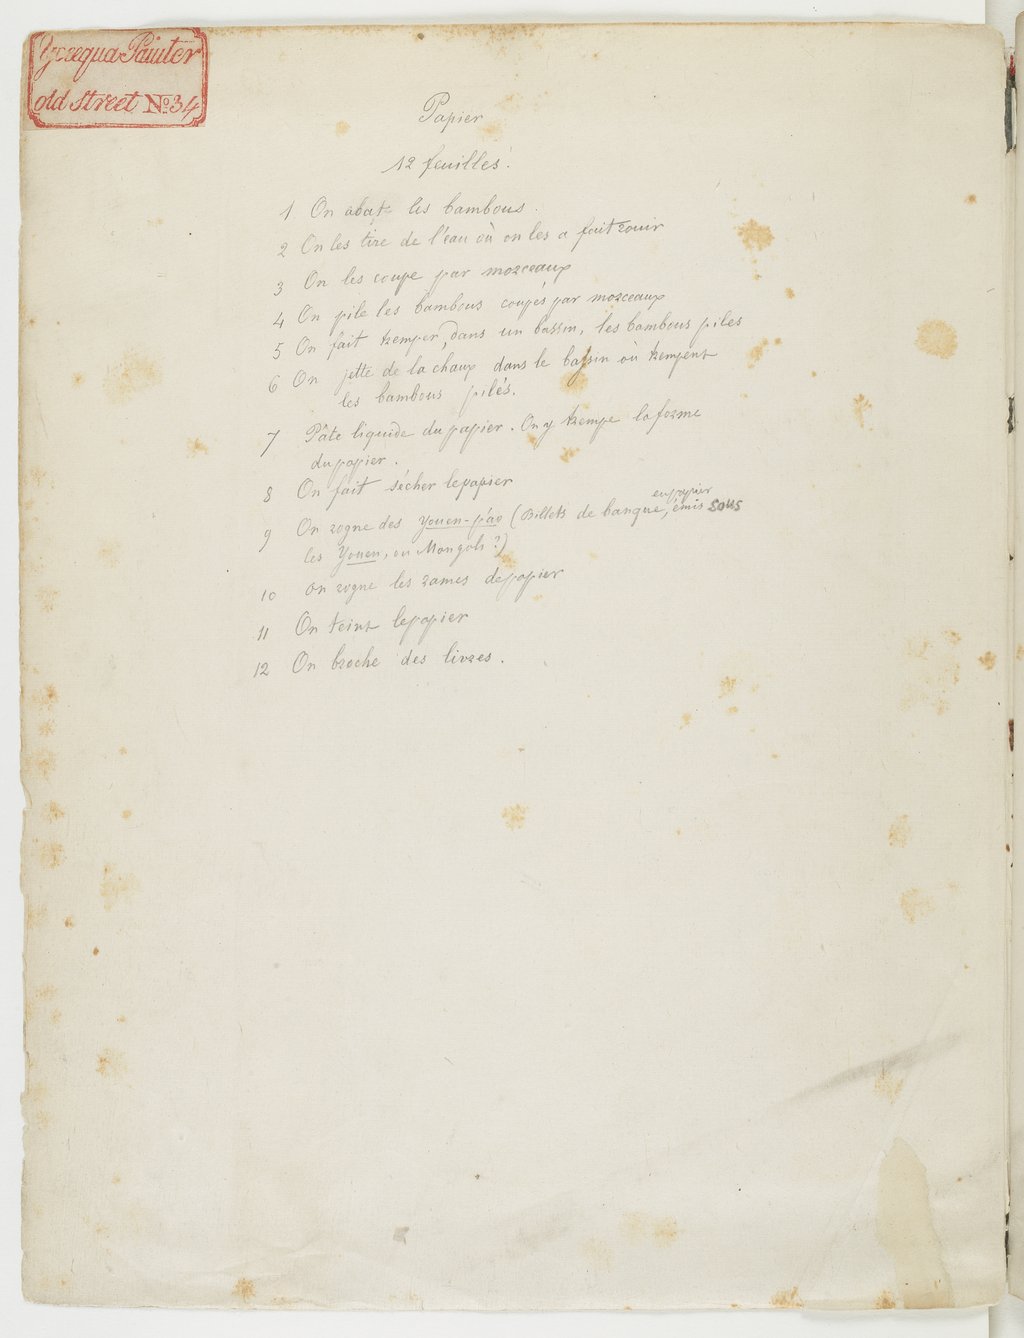 Yoeequa Painter
old Street No. 34
Papier
12 feuilles.
1 On abat les bambous.
2 On les tire de l'eau où on les a fait rouir
3 On les coupe par morceaux
4 On pile les bambous coupés par morceaux
5 On fait tremper, dans un bassin, les bambous pilés
6 On jette de la chaux dans le bassin où trempent
les bambous pilés.
7 Pâte liquide du papier. On y trempe la forme
du papier.
8 On fait sécher le papier
9 On rogne des Youen-p'ao (Billets de banque, en papier, émis sous
les Youen, ou Mongols?)
10 On rogne les rames de papier
11 On teint le papier
12 On broche des livres.